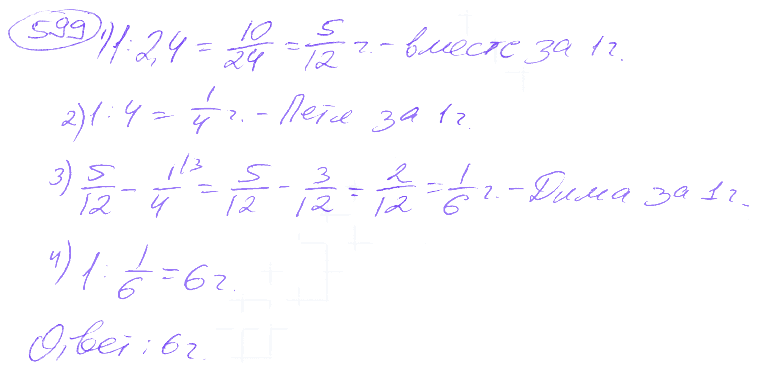 599 1) 1 : 2,4 = 10/24 = 5/12 г. - вместе за 1 г.
2) 1 : 4 = 1/4 г. - Петя за 1 г.
3) 5/12 - 1/4 \3 = 5/12 - 3/12 = 2/12 = 1/6 г. - Дима за 1 г.
4) 1 : 1/6 = 6 г.
Ответ: 6 г.